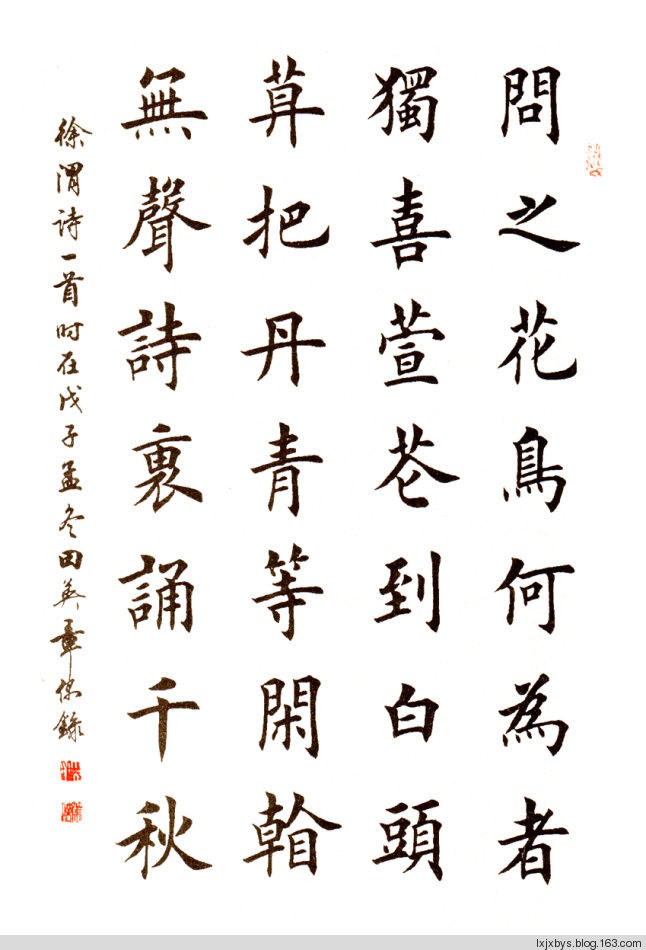 問之花鳥何為者
獨喜萱花到白頭
莫把丹青等閑看
無聲詩裏誦千秋
徐渭詩一首时在戊子孟冬田英章錄
lxjxbys.blog.163.com